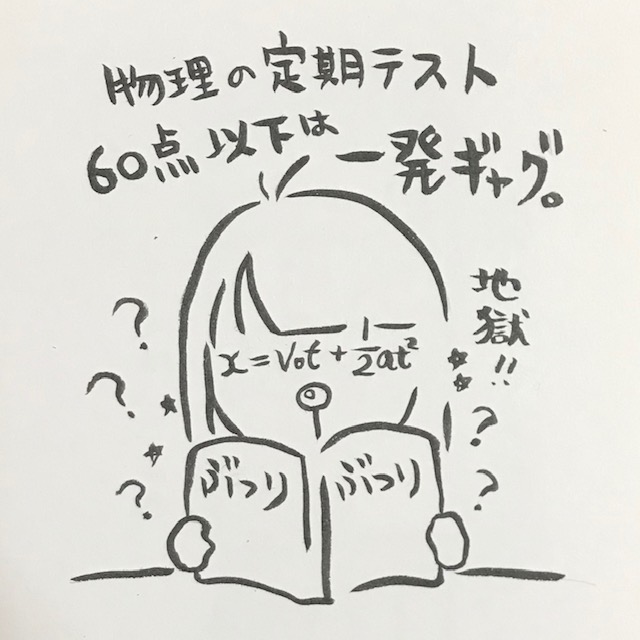 物理の定期テスト
60点以下は一発ギャグ。
地獄!!
x=V₀t+1/2at²
? ? ? ? ?
ぶつり
ぶつり